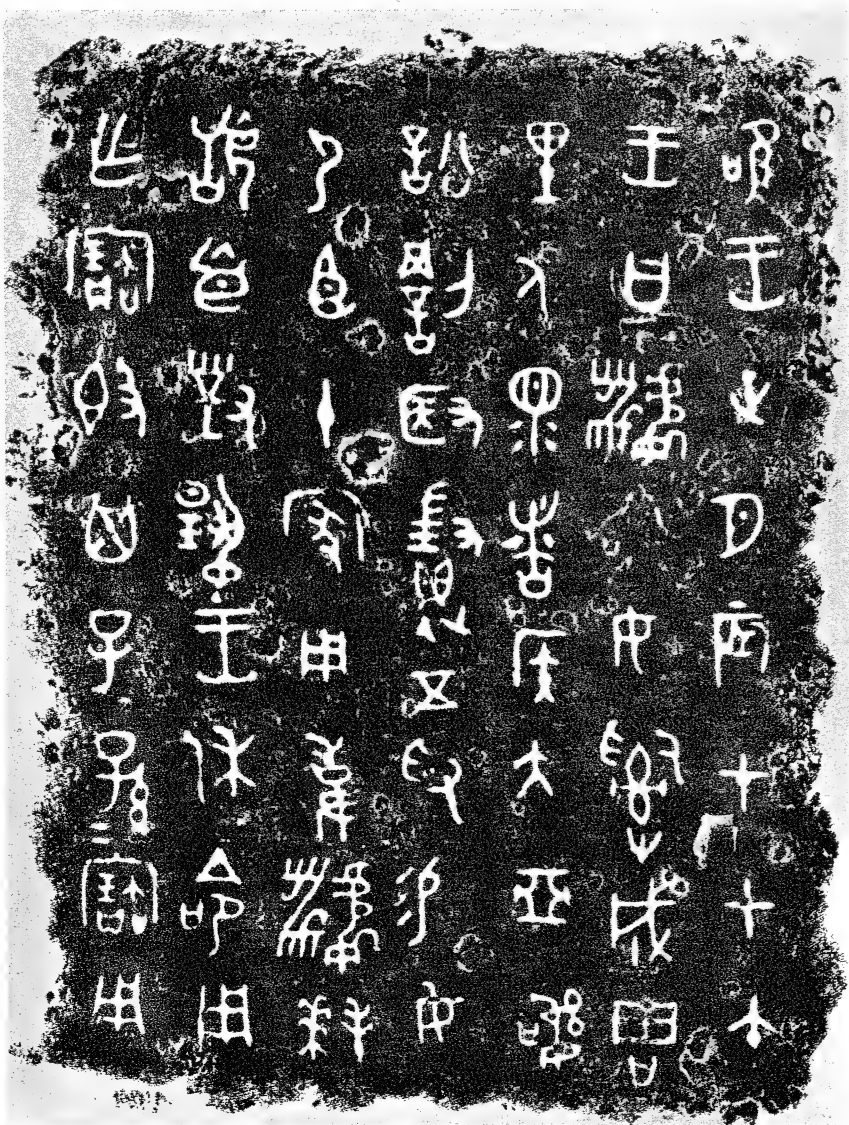 唯王正月辰才甲午
王曰䵼令女𤔲成周
里人眔者侯大亞訊
訟罰取徵五寽易女
尸臣十家用事䵼拜
𩒨首對揚王休命用
乍寶𣪘其子子孫=寶用